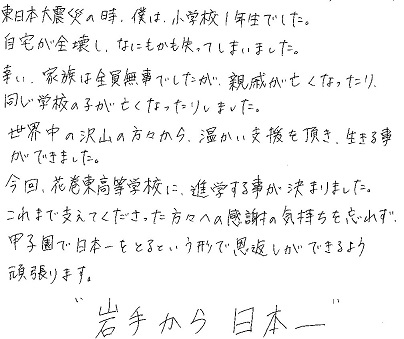 東日本大震災の時、僕は、小学校1年生でした。
自宅が全壊し、なにもかも失ってしまいました。
幸い、家族は全員無事でしたが、親戚が亡くなったり、
同じ学校の子が亡くなったりしました。
世界中の沢山の方々から、温かい支援を頂き、生きる事
ができました。
今回、花巻東高等学校に、進学する事が決まりました。
これまで支えてくださった方々への感謝の気持ちを忘れず、
甲子園で日本一をとるという形で恩返しができるよう
頑張ります。
"岩手から日本一"